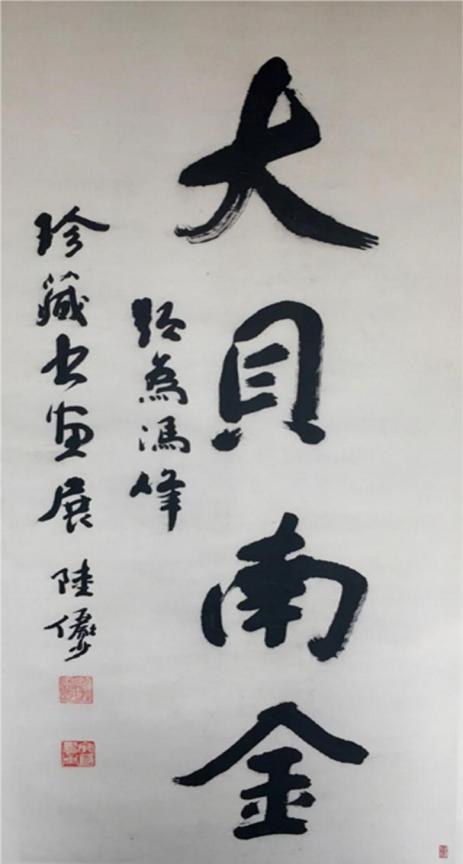 大貝南金
題為馮峰
珍藏書畫展 陸儼少